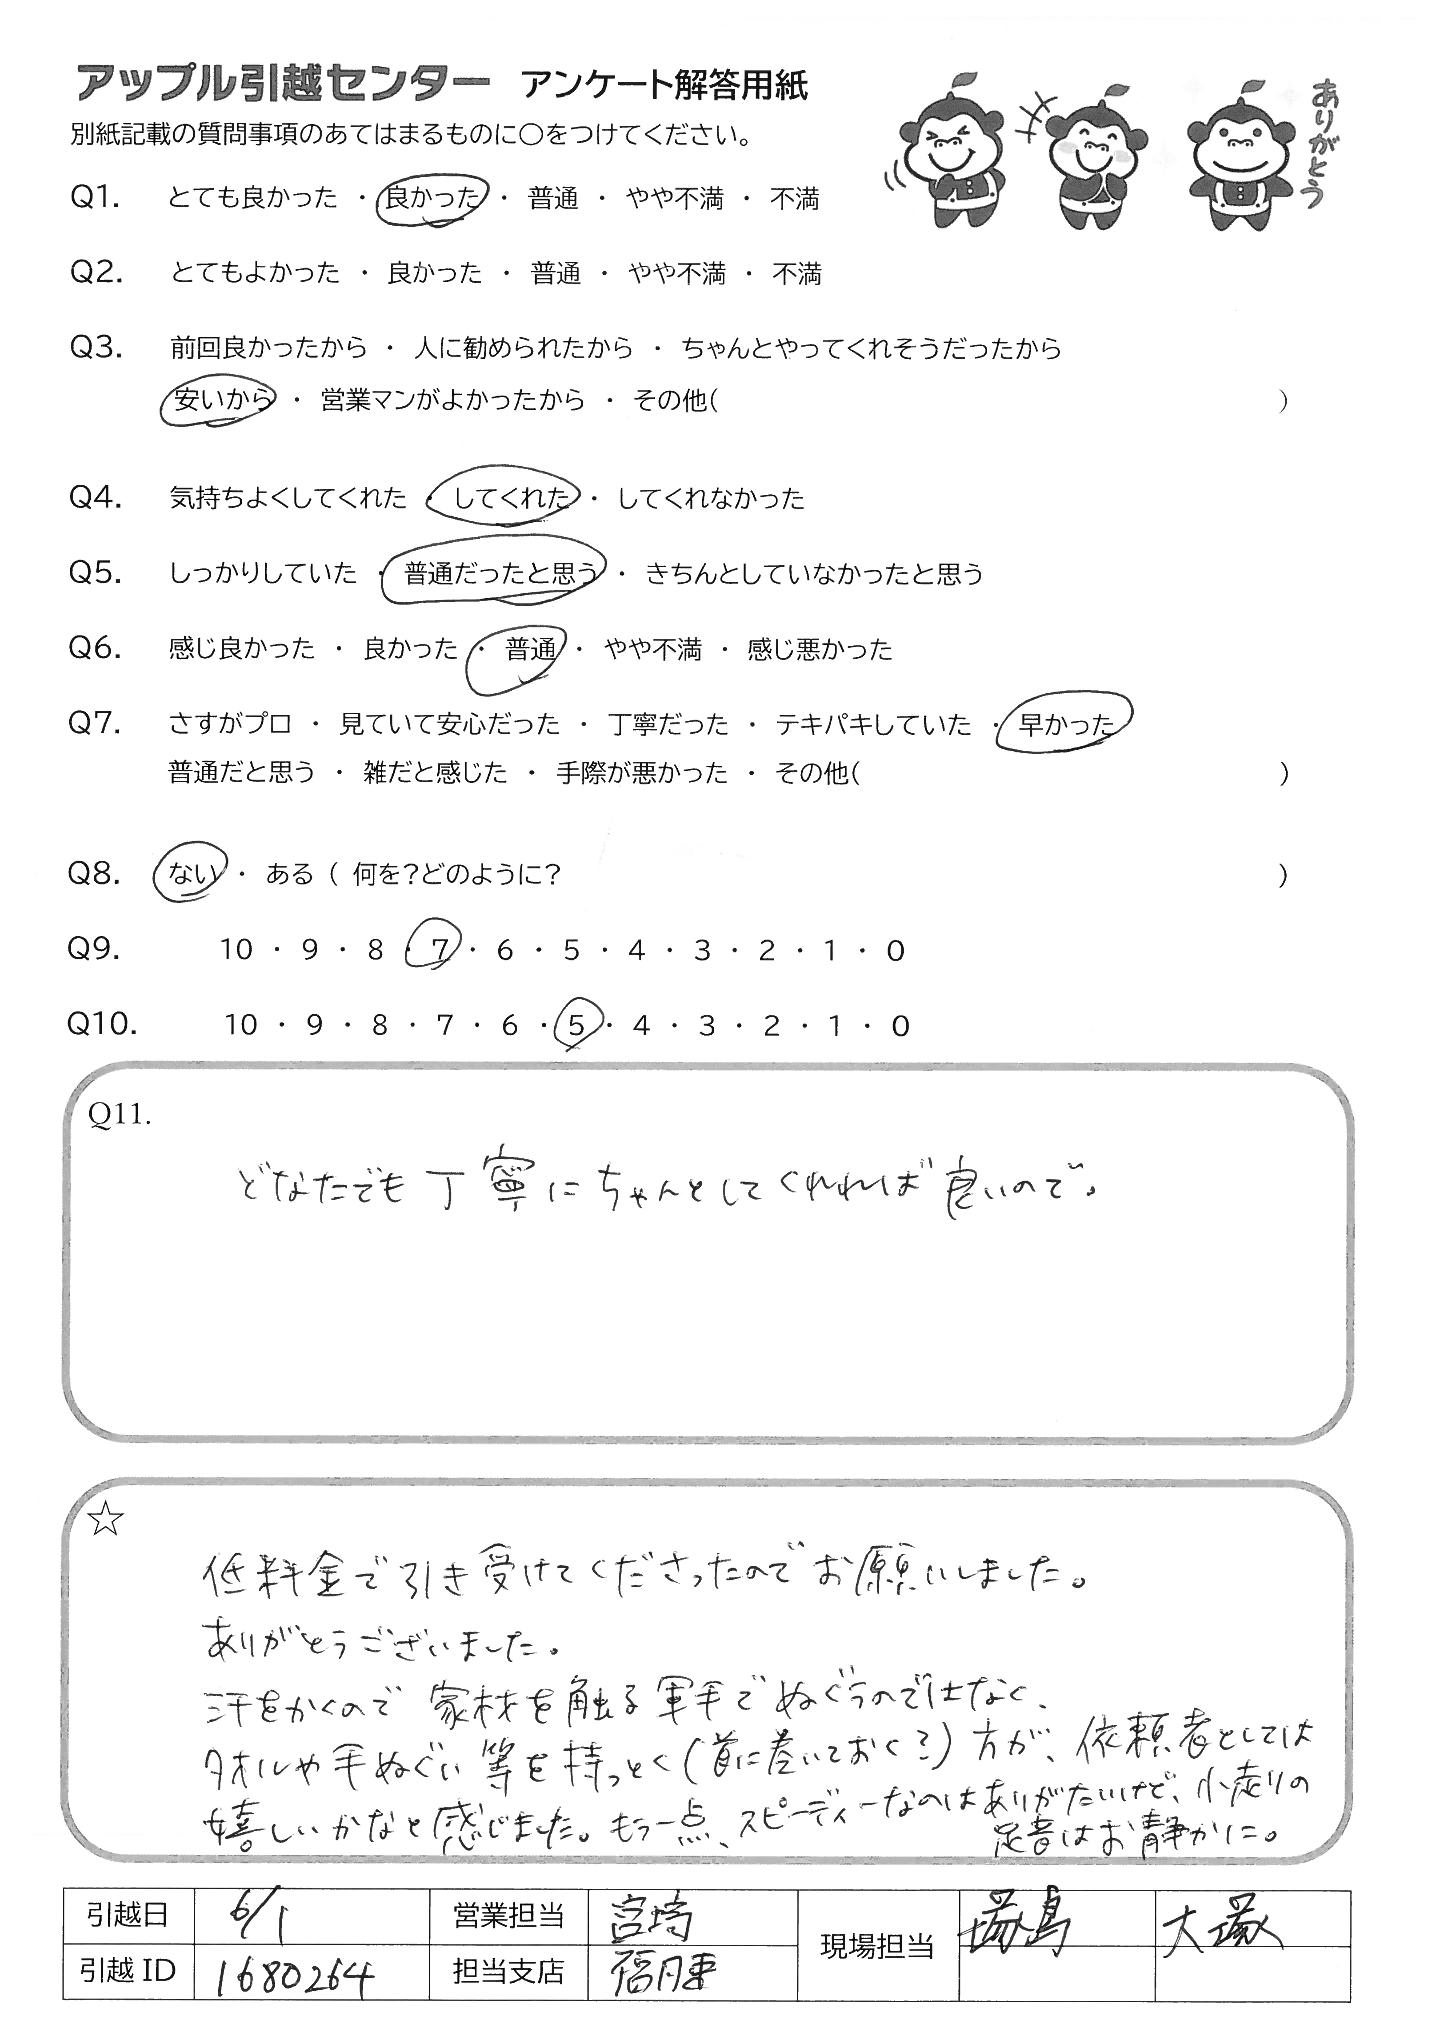 アップル引越センター アンケート解答用紙
ありがとう
別紙記載の質問事項のあてはまるものに○をつけてください。
Q1. とても良かった ・ 良かった ・ 普通 ・ やや不満 ・ 不満
Q2. とてもよかった ・ 良かった ・ 普通 ・ やや不満 ・ 不満
Q3. 前回良かったから ・ 人に勧められたから ・ ちゃんとやってくれそうだったから
安いから ・ 営業マンがよかったから ・ その他( )
Q4. 気持ちよくしてくれた ・ してくれた ・ してくれなかった
Q5. しっかりしていた ・ 普通だったと思う ・ きちんとしていなかったと思う
Q6. 感じ良かった ・ 良かった ・ 普通 ・ やや不満 ・ 感じ悪かった
Q7. さすがプロ ・ 見ていて安心だった ・ 丁寧だった ・ テキパキしていた ・ 早かった
普通だと思う ・ 雑だと感じた ・ 手際が悪かった ・ その他( )
Q8. ない ・ ある ( 何を?どのように? )
Q9. 10 ・ 9 ・ 8 ・ 7 ・ 6 ・ 5 ・ 4 ・ 3 ・ 2 ・ 1 ・ 0
Q10. 10 ・ 9 ・ 8 ・ 7 ・ 6 ・ 5 ・ 4 ・ 3 ・ 2 ・ 1 ・ 0
Q11.
どなたでも丁寧にちゃんとしてくれれば良いので。
☆
低料金で引き受けてくださったのでお願いしました。
ありがとうございました。
汗をかくので家材を触る軍手でぬぐうのではなく、
タオルや手ぬぐい等を持っとく(首に巻いておく?)方が、依頼者としては
嬉しいかなと感じました。もう一点、スピーディーなのはありがたいけど、小走りの
足音はお静かに。
引越日 6/1 営業担当 宮崎 現場担当 塚島 大塚
引越ID 1680264 担当支店 福岡東